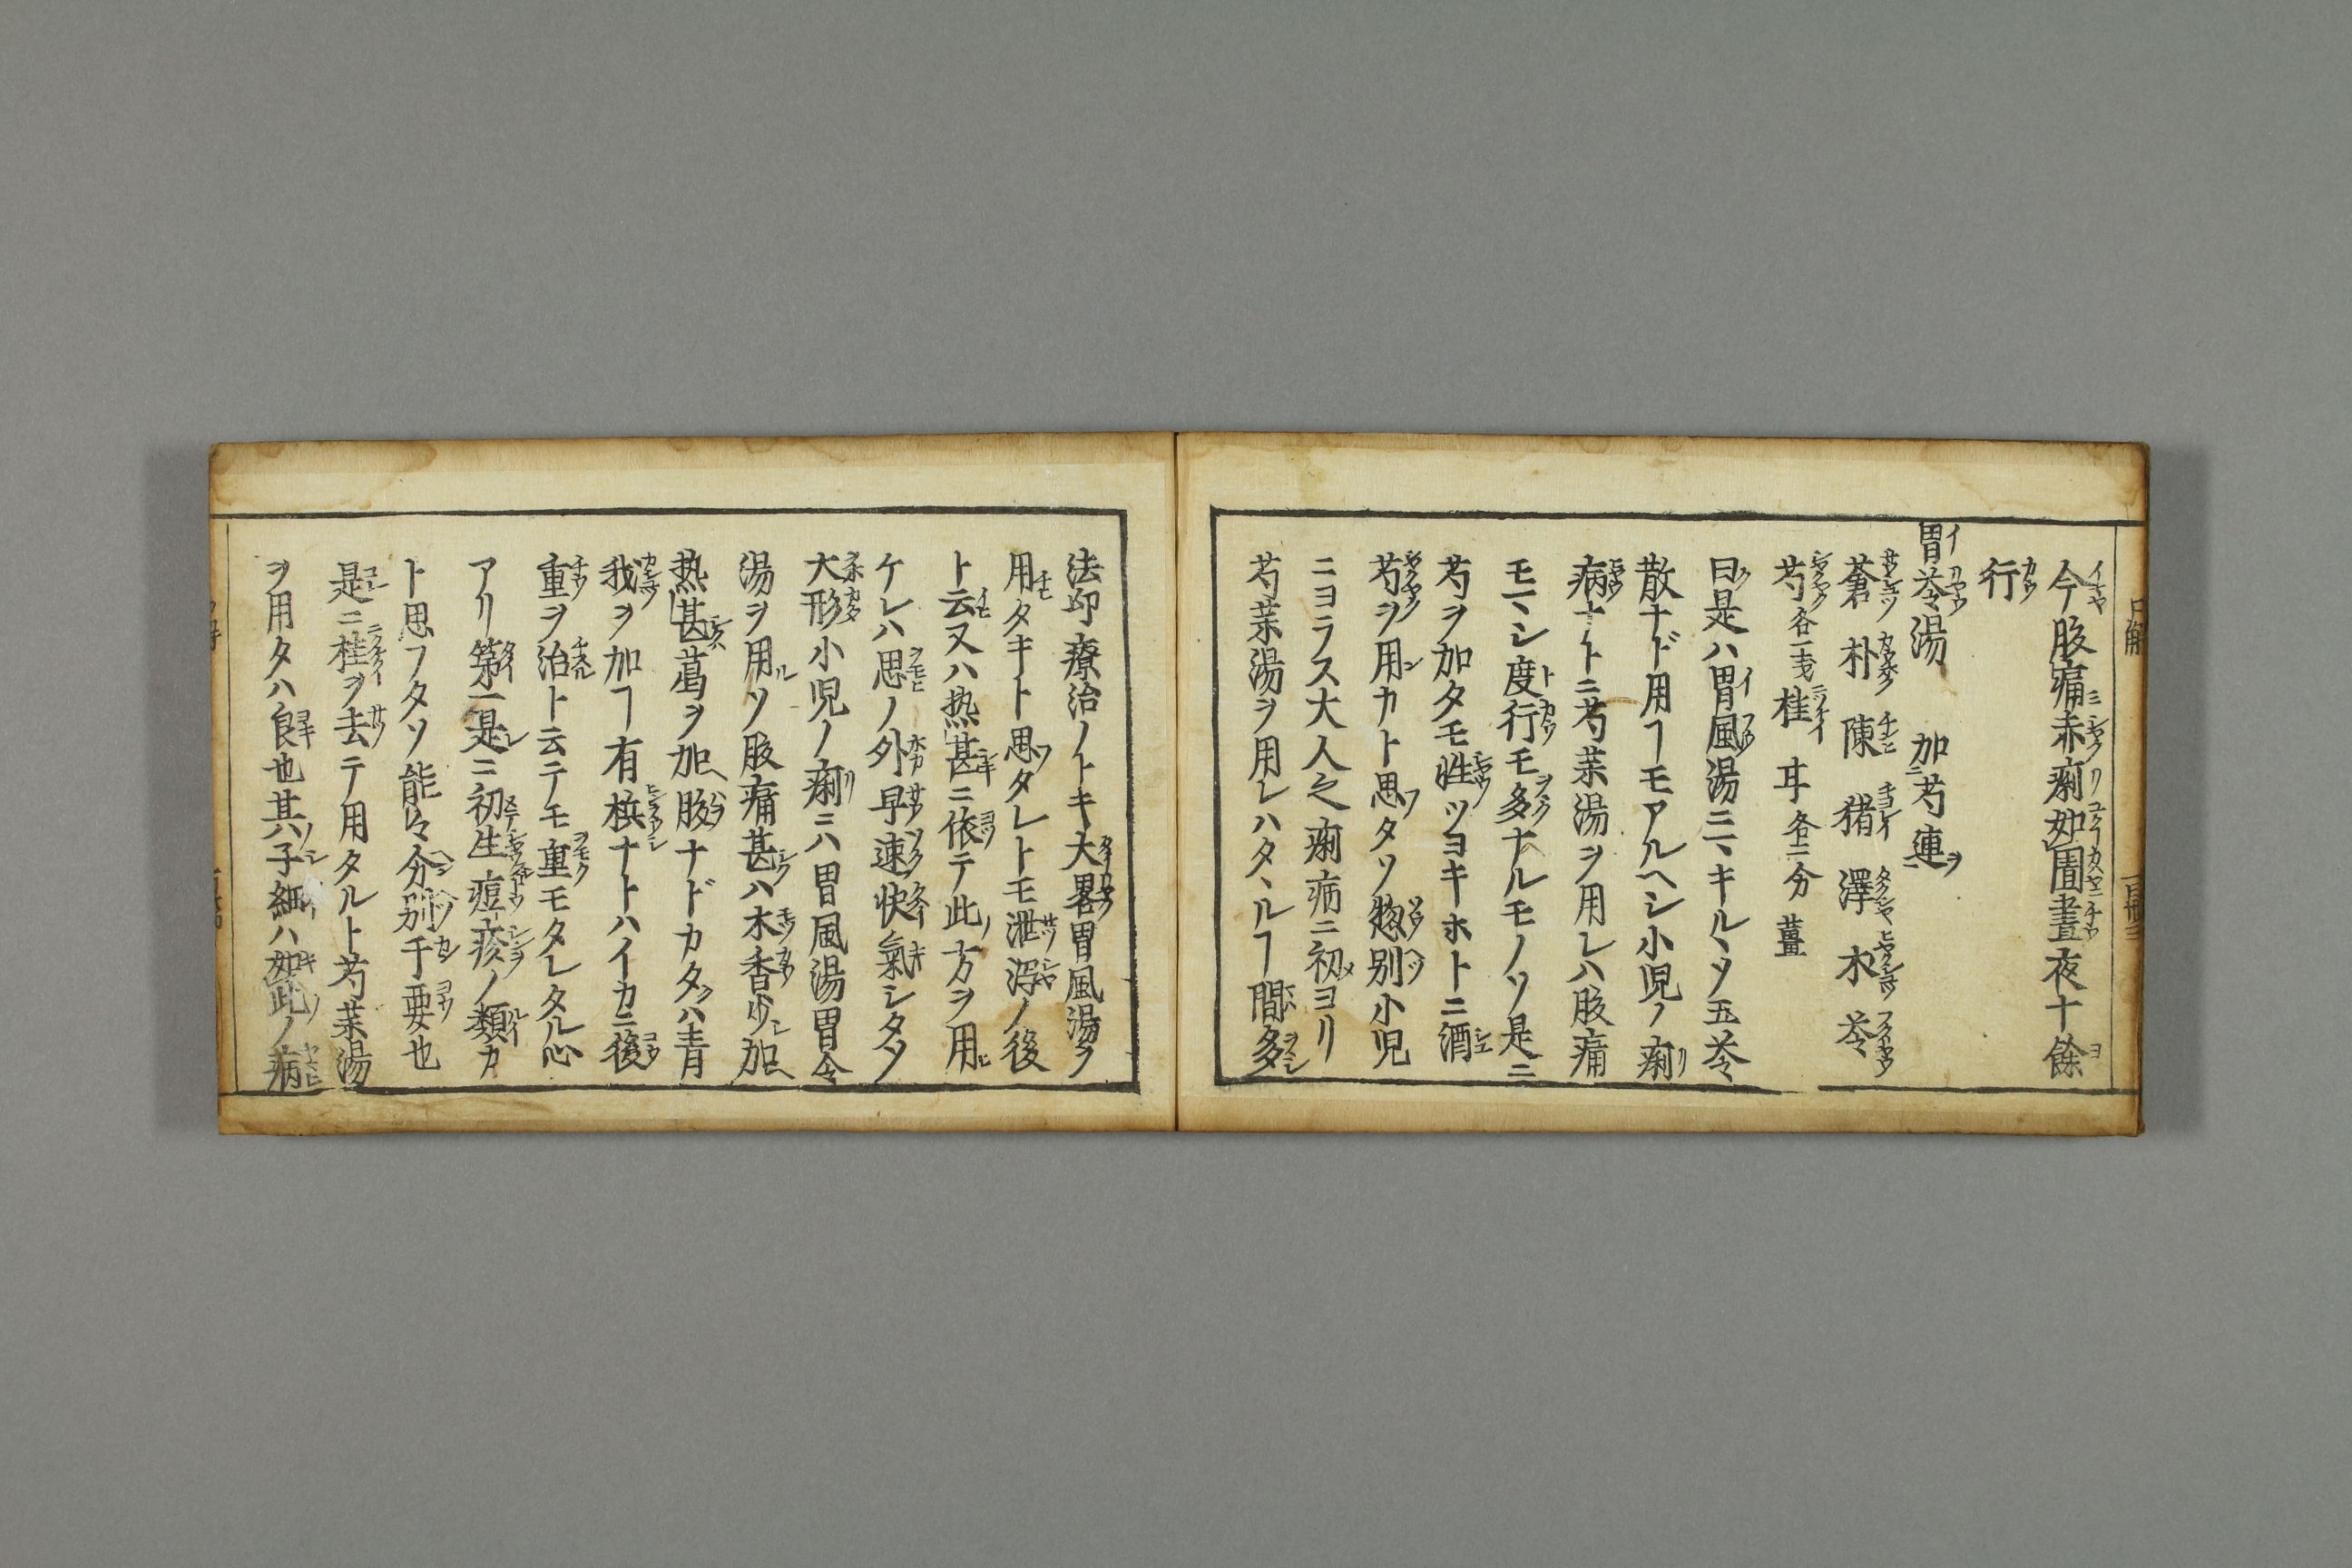 今腹痛赤痢如圊晝夜十餘
行
胃苓湯　加芍連
蒼　朴　陳　猪　澤　木　苓
芍各一戔　桂　耳各二分　薑
曰是ハ胃風湯ニヽキルヽソ五苓
散ナド用ヿモアルヘシ小児ノ痢
病ナトニ芍薬湯ヲ用レハ腹痛
モヤヽシ度行モ多ナルモノソ是ニ
芍ヲ加タモ性ツヨキホトニ酒
芍ヲ用カト思タソ惣別小児
ニヨラス大人之痢病ニ初ヨリ
芍薬湯ヲ用レハタヽルヿ間多
法印療治ノトキ大畧胃風湯ヲ
用タキト思タレトモ泄瀉ノ後
ト云又ハ熱甚ニ依テ此方ヲ用
ケレハ思ノ外早速快氣シタソ
大形小児ノ痢ニハ胃風湯胃令
湯ヲ用ソ腹痛甚ハ木香少加
熱甚葛ヲ加腹ナドカタクハ青
我ヲ加ヿ有檳ナトハイカニ後
重ヲ治ト云テモ重モタレタル心
アリ第一是ニ初生痘疹ノ類カ
ト思フタソ能々分別干要也
是ニ桂ヲ去テ用タルト芍薬湯
ヲ用タハ良也其子細ハ如此ノ病